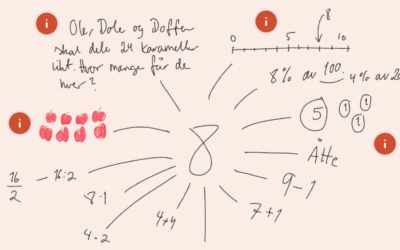 Ole, Dole og Doffen
skal dele 24 karameller
likt. Hvor mange får de
hver?
8
0 5 10
8% av 100
4% av 2
5 1 1 1
Åtte
9-1
7+1
4+4
4·2
8·1
16:2
16
2
8